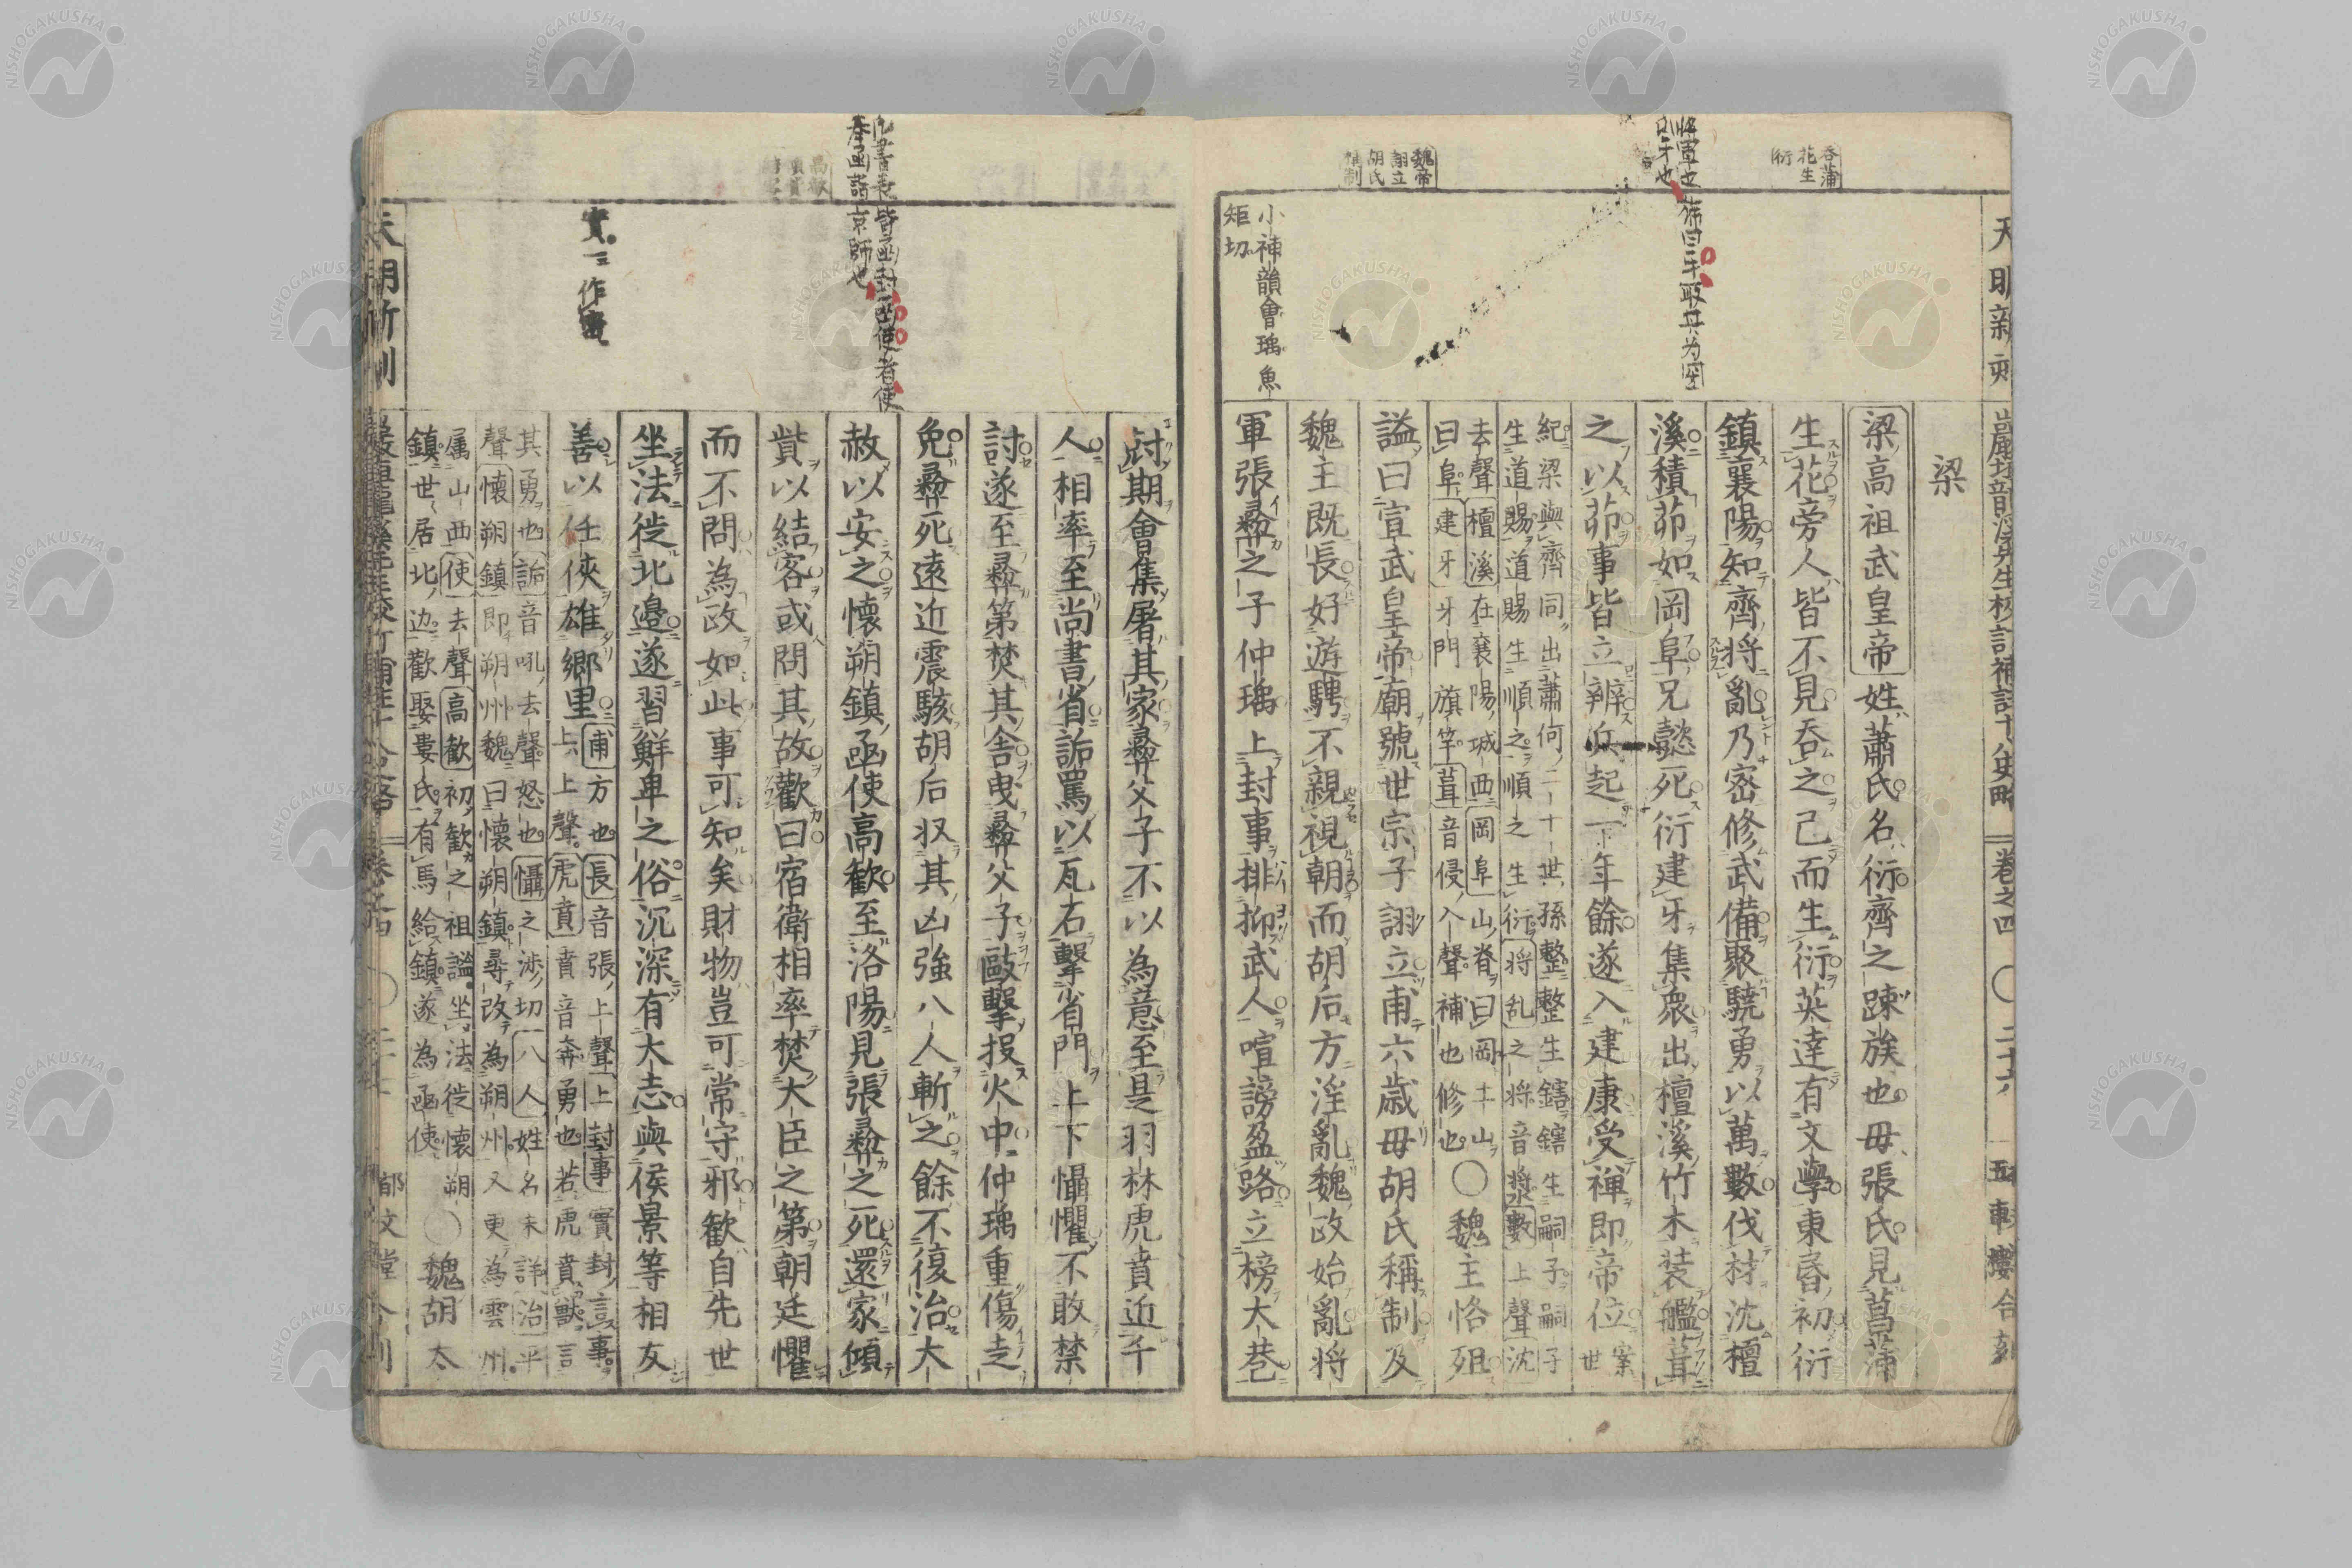 天明新刻
巻之四 〇二十六
呑蒲
花生
衍
魏帝
詡立
胡氏
稱制
小補韻會瑀魚
矩切
梁
梁高祖武皇帝姓蕭氏名衍齊之疎族也母張氏見菖蒲
生花旁人皆不見呑之己而生衍英達有文學東昏初衍
鎮襄陽知齊將亂乃密修武備聚驍勇以萬數伐材沈檀
溪積茆如岡阜兄懿死衍建牙集衆出檀溪竹木装艦葺
之以茆事皆立辨兵起一下年餘遂入建康受禅即帝位案世
紀梁與齊同出蕭何二十世孫整整生鎋鎋生嗣子嗣子
生道賜道賜生順之順之生衍將乱之将音漿數上聲沈
去聲檀溪在襄陽城西岡阜山脊曰岡土山
曰阜建牙牙門旗竿葺音侵入聲補也修也〇魏主恪殂
謚曰宣武皇帝廟號世宗子詡立甫六歳母胡氏稱制及
魏主既長好遊騁不親視朝而胡后方淫亂魏政始亂将
軍張彝之子仲瑀上封事排抑武人喧謗盈路立榜大巷
凡書表皆函封函使者使
奉函詣京師也
實一作寔
尅期會集屠其家彝父子不以為意至是羽林虎賁近千
人相率至尚書省詬罵以瓦石擊省門上下懾懼不敢禁
討遂至彝第焚其舎曳彝父子敺擊投火中仲瑀重傷走
免彝死遠近震駭胡后収其凶強八人斬之餘不復治大
赦以安之懷朔鎮函使高歡至洛陽見張彝之死還家傾
貲以結客或問其故歡曰宿衛相率焚大臣之第朝廷懼
而不問為政如此事可知矣財物豈可常守邪歡自先世
坐法徙北邊遂習鮮卑之俗沉深有大志與侯景等相友
善以任俠雄郷里甫方也長音張上聲上封事實封言事
上上聲虎賁賁音奔勇也若虎賁獣言
其勇也詬音吼去聲怒也懾之渉切八人姓名未詳治平
聲懷朔鎮即朔州魏曰懷朔鎮尋改為朔州又更為雲州
属山西使去聲高歡初歡之祖謐坐法徙懷朔
鎮世居北边歡娶婁氏有馬給鎮遂為函使〇魏胡太
天明新刻